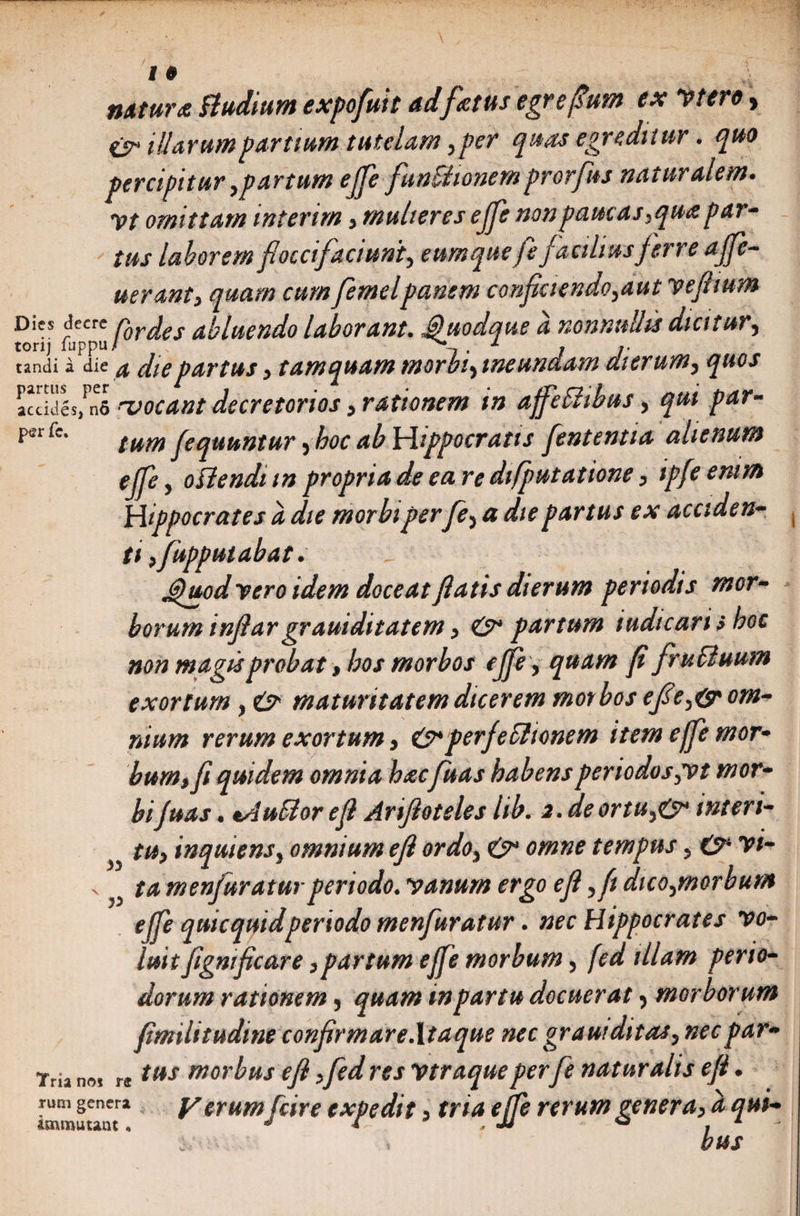 10
naturæ ſtudium expoſuit ad fœtus egreſſum ex vtero,
& illarum partium tutelam, per quas egreditur. quo
percipitur, partum eſſe functionem prorſus naturalem.
vt omittam interim, mulieres eſſe non paucas, quæ par-
tus laborem floccifaciunt, eumque ſe facilius ferre aſſe-
uerant, quam cum ſemel panem conficiendo, aut veſtium
ſordes abluendo laborant. Quodque à nonnullis dicitur,
à die partus, tamquam morbi, ineundam dierum, quos
vocant decretorios, rationem in affectibus, qui par-
tum ſequuntur, hoc ab Hippocratis ſententia alienum
eſſe, oſtendi in propria de ea re diſputatione, ipſe enim
Hippocrates à die morbi per ſe, a die partus ex acciden-
ti, ſupputabat.
Dies decre
torij ſuppu
tandi à die
partus per
accidēs, nō
per ſe.
Quod vero idem doceat ſtatis dierum periodis mor-
borum inſtar grauiditatem, & partum iudicari; hoc
non magis probat, hos morbos eſſe, quam ſi fructuum
exortum, & maturitatem dicerem morbos eſſe, & om-
nium rerum exortum, & perfectionem item eſſe mor-
bum, ſi quidem omnia hæc ſuas habens periodos, vt mor-
bi ſuas. Auctor eſt Ariſtoteles lib. 2. de ortu, & interi-
„ tu, inquiens, omnium eſt ordo, & omne tempus, & vi-
„ ta menſuratur periodo. vanum ergo eſt, ſi dico, morbum
eſſe quicquid periodo menſuratur. nec Hippocrates vo-
luit ſignificare, partum eſſe morbum, ſed illam perio-
dorum rationem, quam in partu docuerat, morborum
ſimilitudine confirmare. Itaque nec grauiditas, nec par-
tus morbus eſt, ſed res vtraque per ſe naturalis eſt.
Verum ſcire expedit, tria eſſe rerum genera, à qui-
bus
Tria nos re
rum genera
immutant.